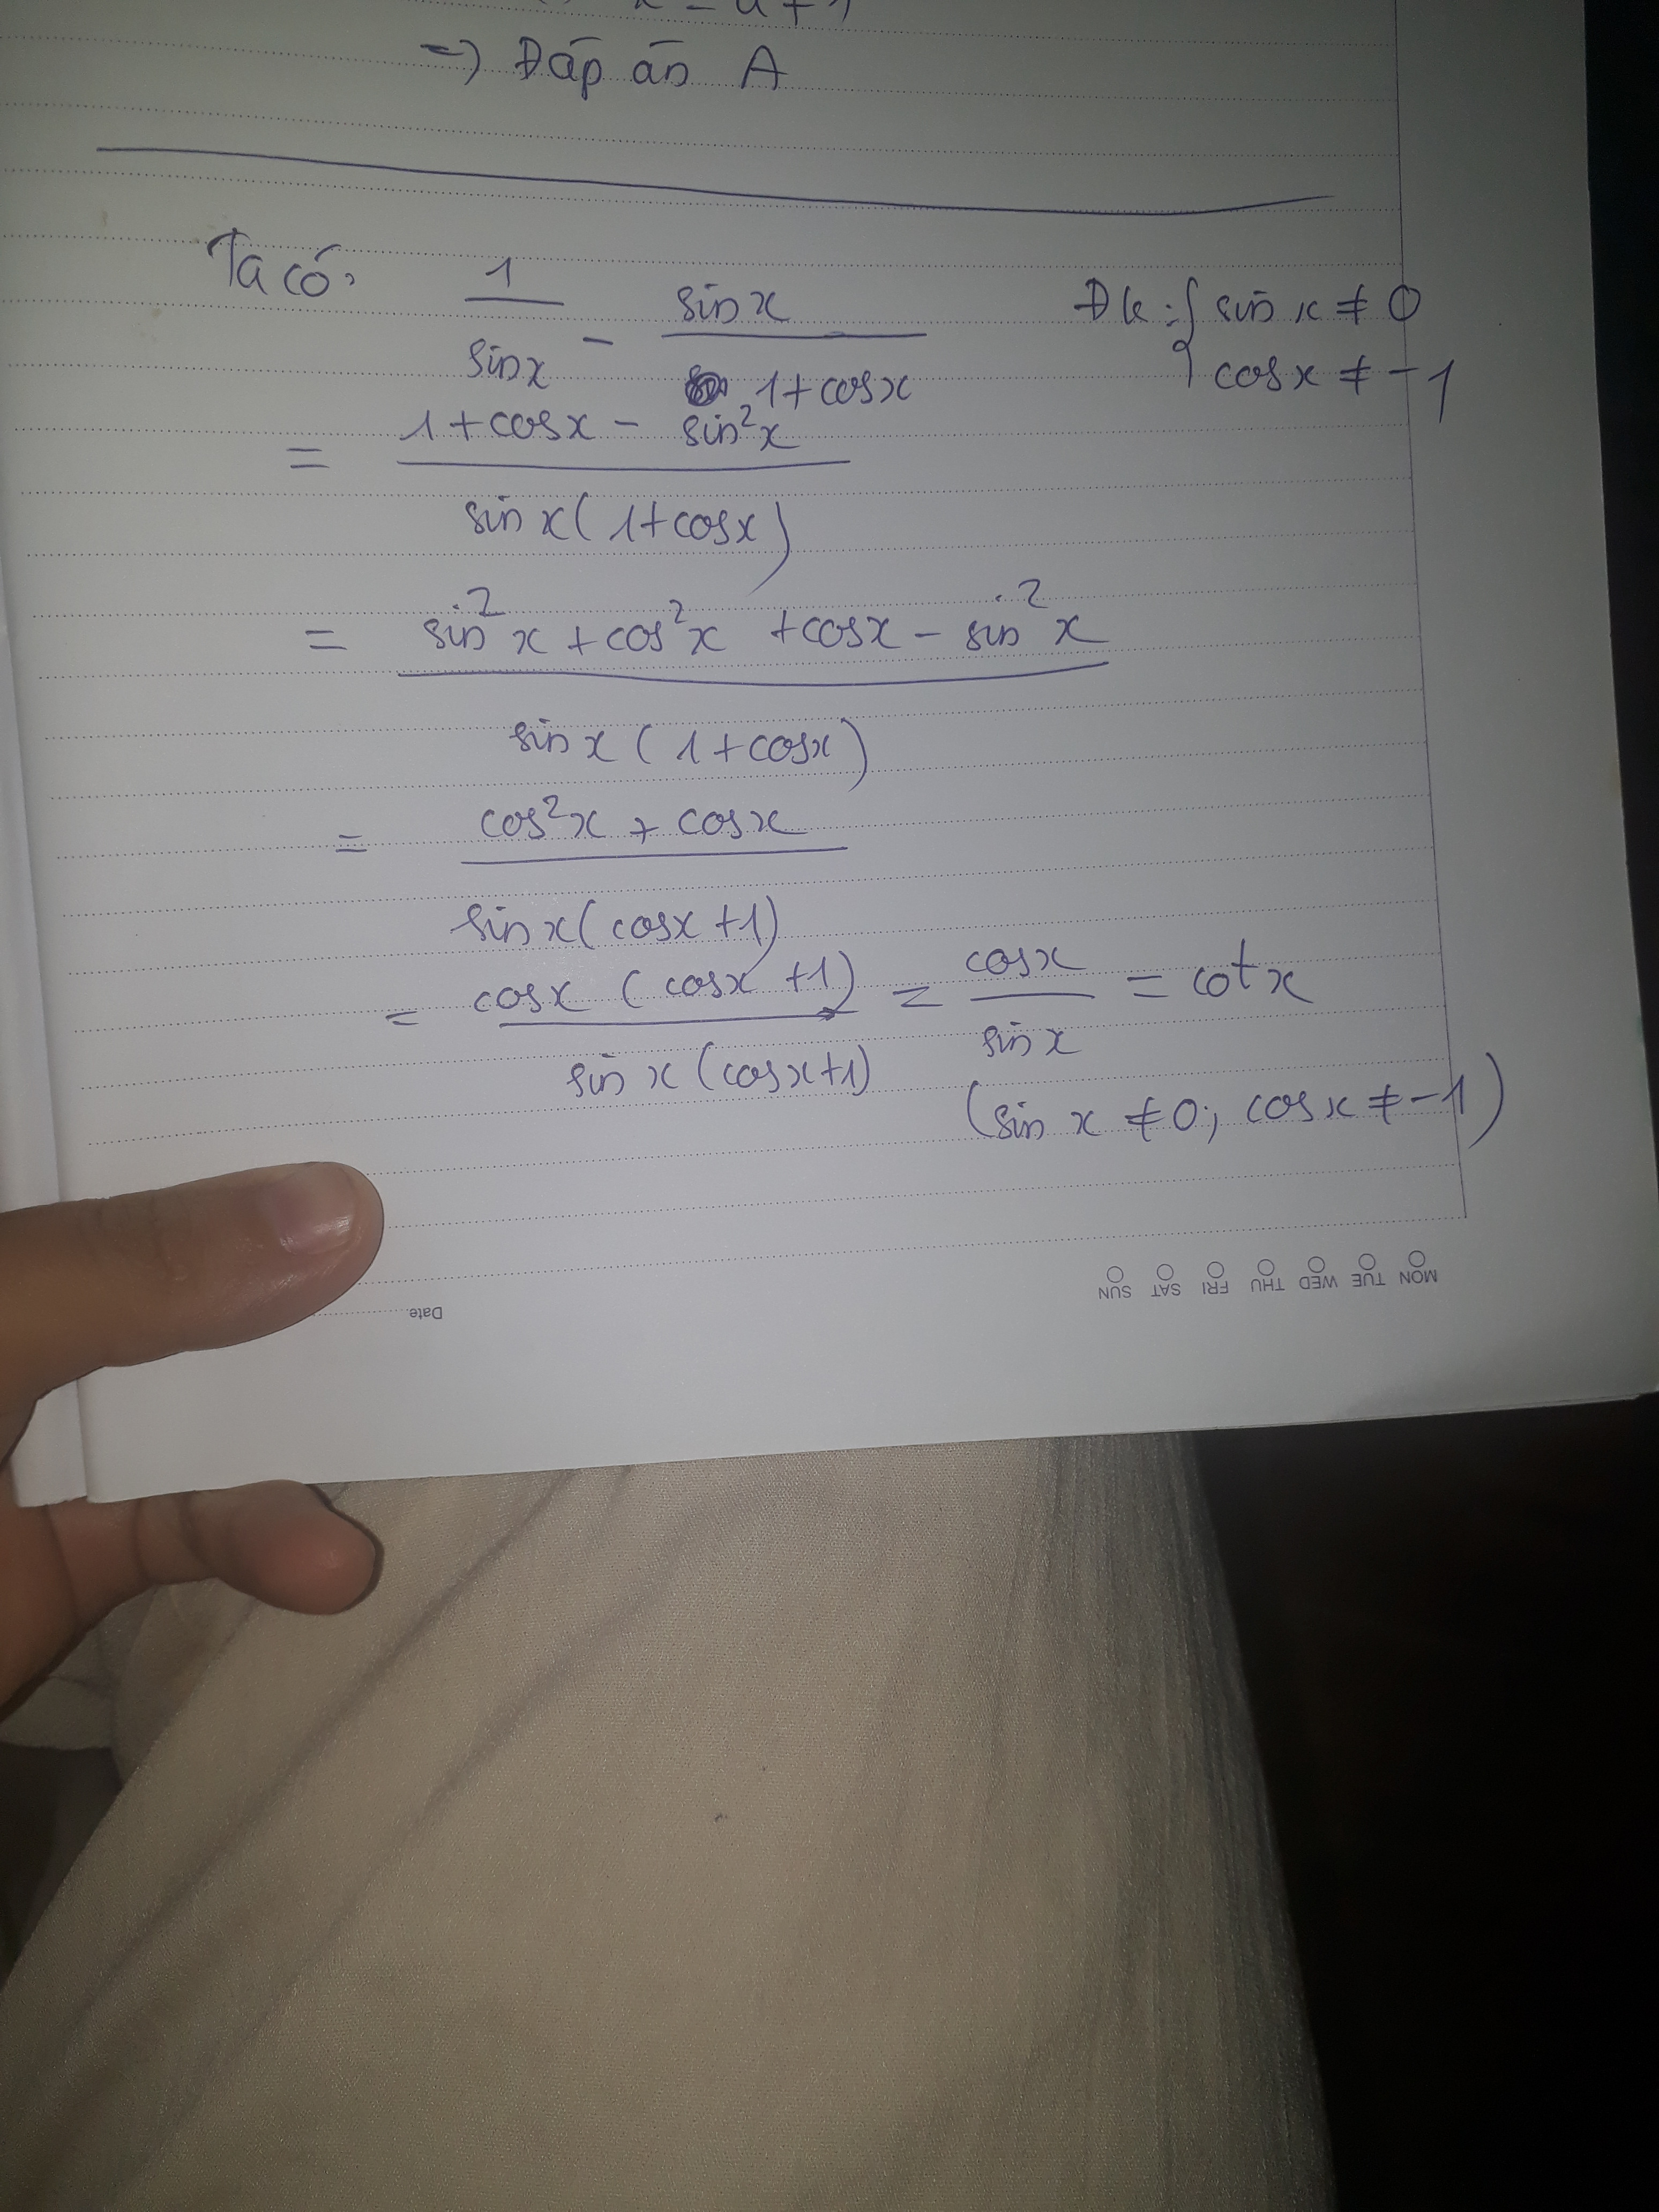 =) Đáp án A
Ta có: 1/sinx - sinx/1+cosx ĐK: { sin x ≠ 0
cosx ≠ -1
= 1+cosx - sin²x / sinx(1+cosx)
= sin²x + cos²x + cosx - sin²x / sinx(1+cosx)
= cos²x + cosx / sinx(cosx+1)
= cosx (cosx+1) / sinx(cosx+1) = cosx/sinx = cotx
(sin x ≠ 0; cosx ≠ -1)
MON TUE WED THU FRI SAT SUN
Date